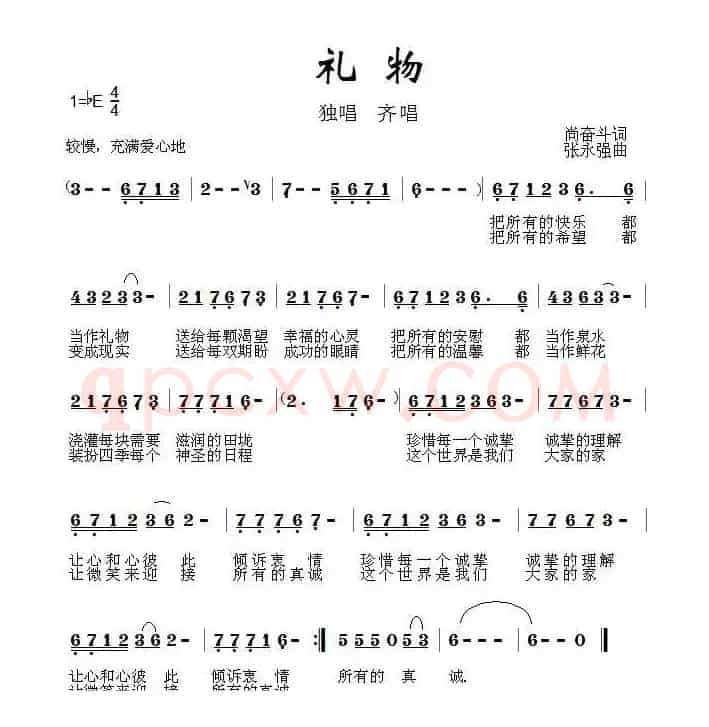 礼 物
1=♭E 4/4
独唱 齐唱
尚奋斗词
较慢，充满爱心地
张永强曲
(3-- 6713 | 2--V3 | 7--5671 | 6---) 671236. 6 |
把所有的快乐 都
把所有的希望 都
432333- | 217673 | 217676- | 671236. 6 | 43633-
当作礼物 送给每颗渴望 幸福的心灵 把所有的安慰 都 当作泉水
变成现实 送给每双期盼 成功的眼睛 把所有的温馨 都 当作鲜花
qpcxw.COM
217673- | 777716- | (2. 176-) | 6712363- | 77673-
浇灌每块需要 滋润的田垅 珍惜每一个诚挚 诚挚的理解
装扮四季每个 神圣的日程 这个世界是我们 大家的家
6712362- | 77767- | 6712363- | 77673-
让心和心彼 此 倾诉衷 情 珍惜每一个诚挚 诚挚的理解
让微笑来迎 接 所有的真诚 这个世界是我们 大家的家
6712362- | 777716- :| 555053 | 6--- | 6--0 |
让心和心彼 此 倾诉衷 情 所有的 真 诚.
让微笑来迎 接 所有的真诚